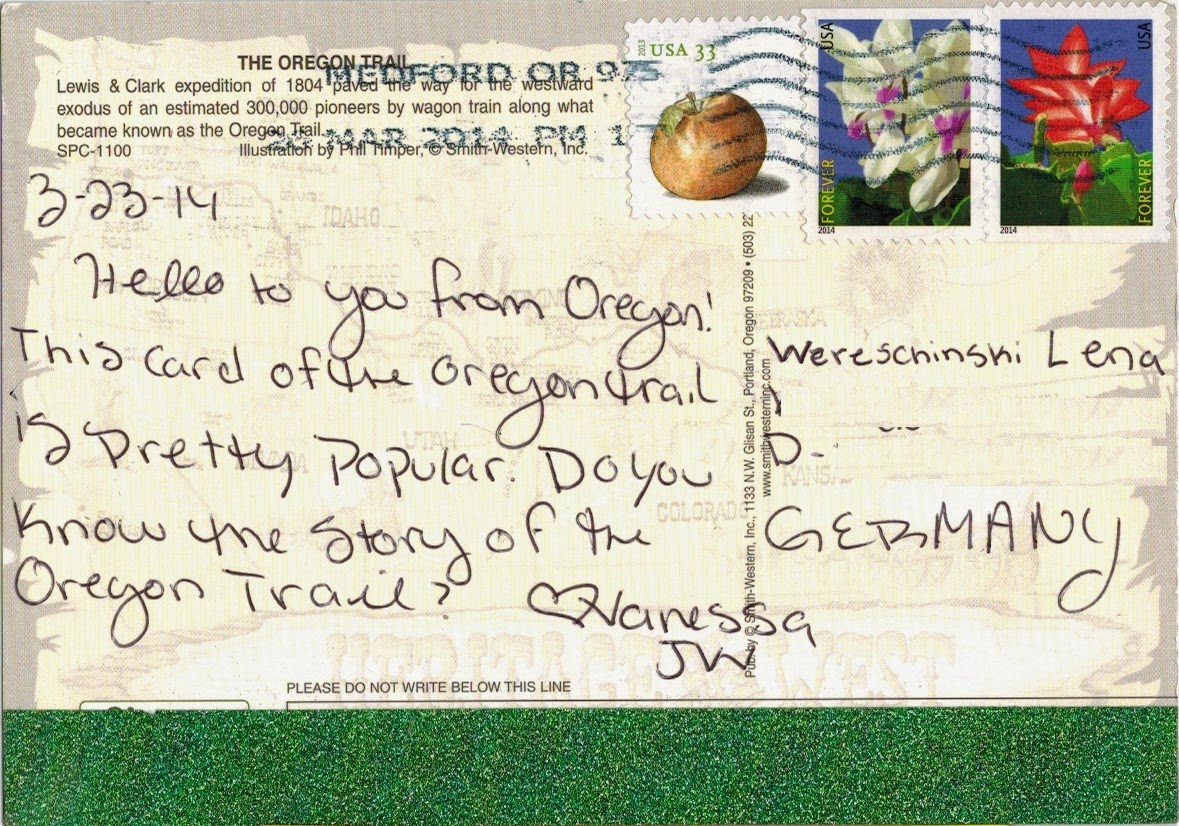 THE OREGON TRAIL
Lewis & Clark expedition of 1804 paved the way for the westward
exodus of an estimated 300,000 pioneers by wagon train along what
became known as the Oregon Trail.
SPC-1100 Illustration by Phil Timper, © Smith-Western, Inc.
MEDFORD OR 975
MAR 2014 PM 1
2013 USA 33
USA
FOREVER
2014
USA
FOREVER
2014
3-23-14
Hello to you from Oregon!
This card of the oregon trail
is pretty popular. Do you
know the story of the
Oregon Trail?
Vanessa
JW
Pub. by © Smith-Western, Inc., 1133 N.W. Glisan St., Portland, Oregon 97209 • (503) 22
www.smithwesterninc.com
Wereschinski Lena
D-
GERMANY
IDAHO
UTAH
COLORADO
KANSA
PLEASE DO NOT WRITE BELOW THIS LINE